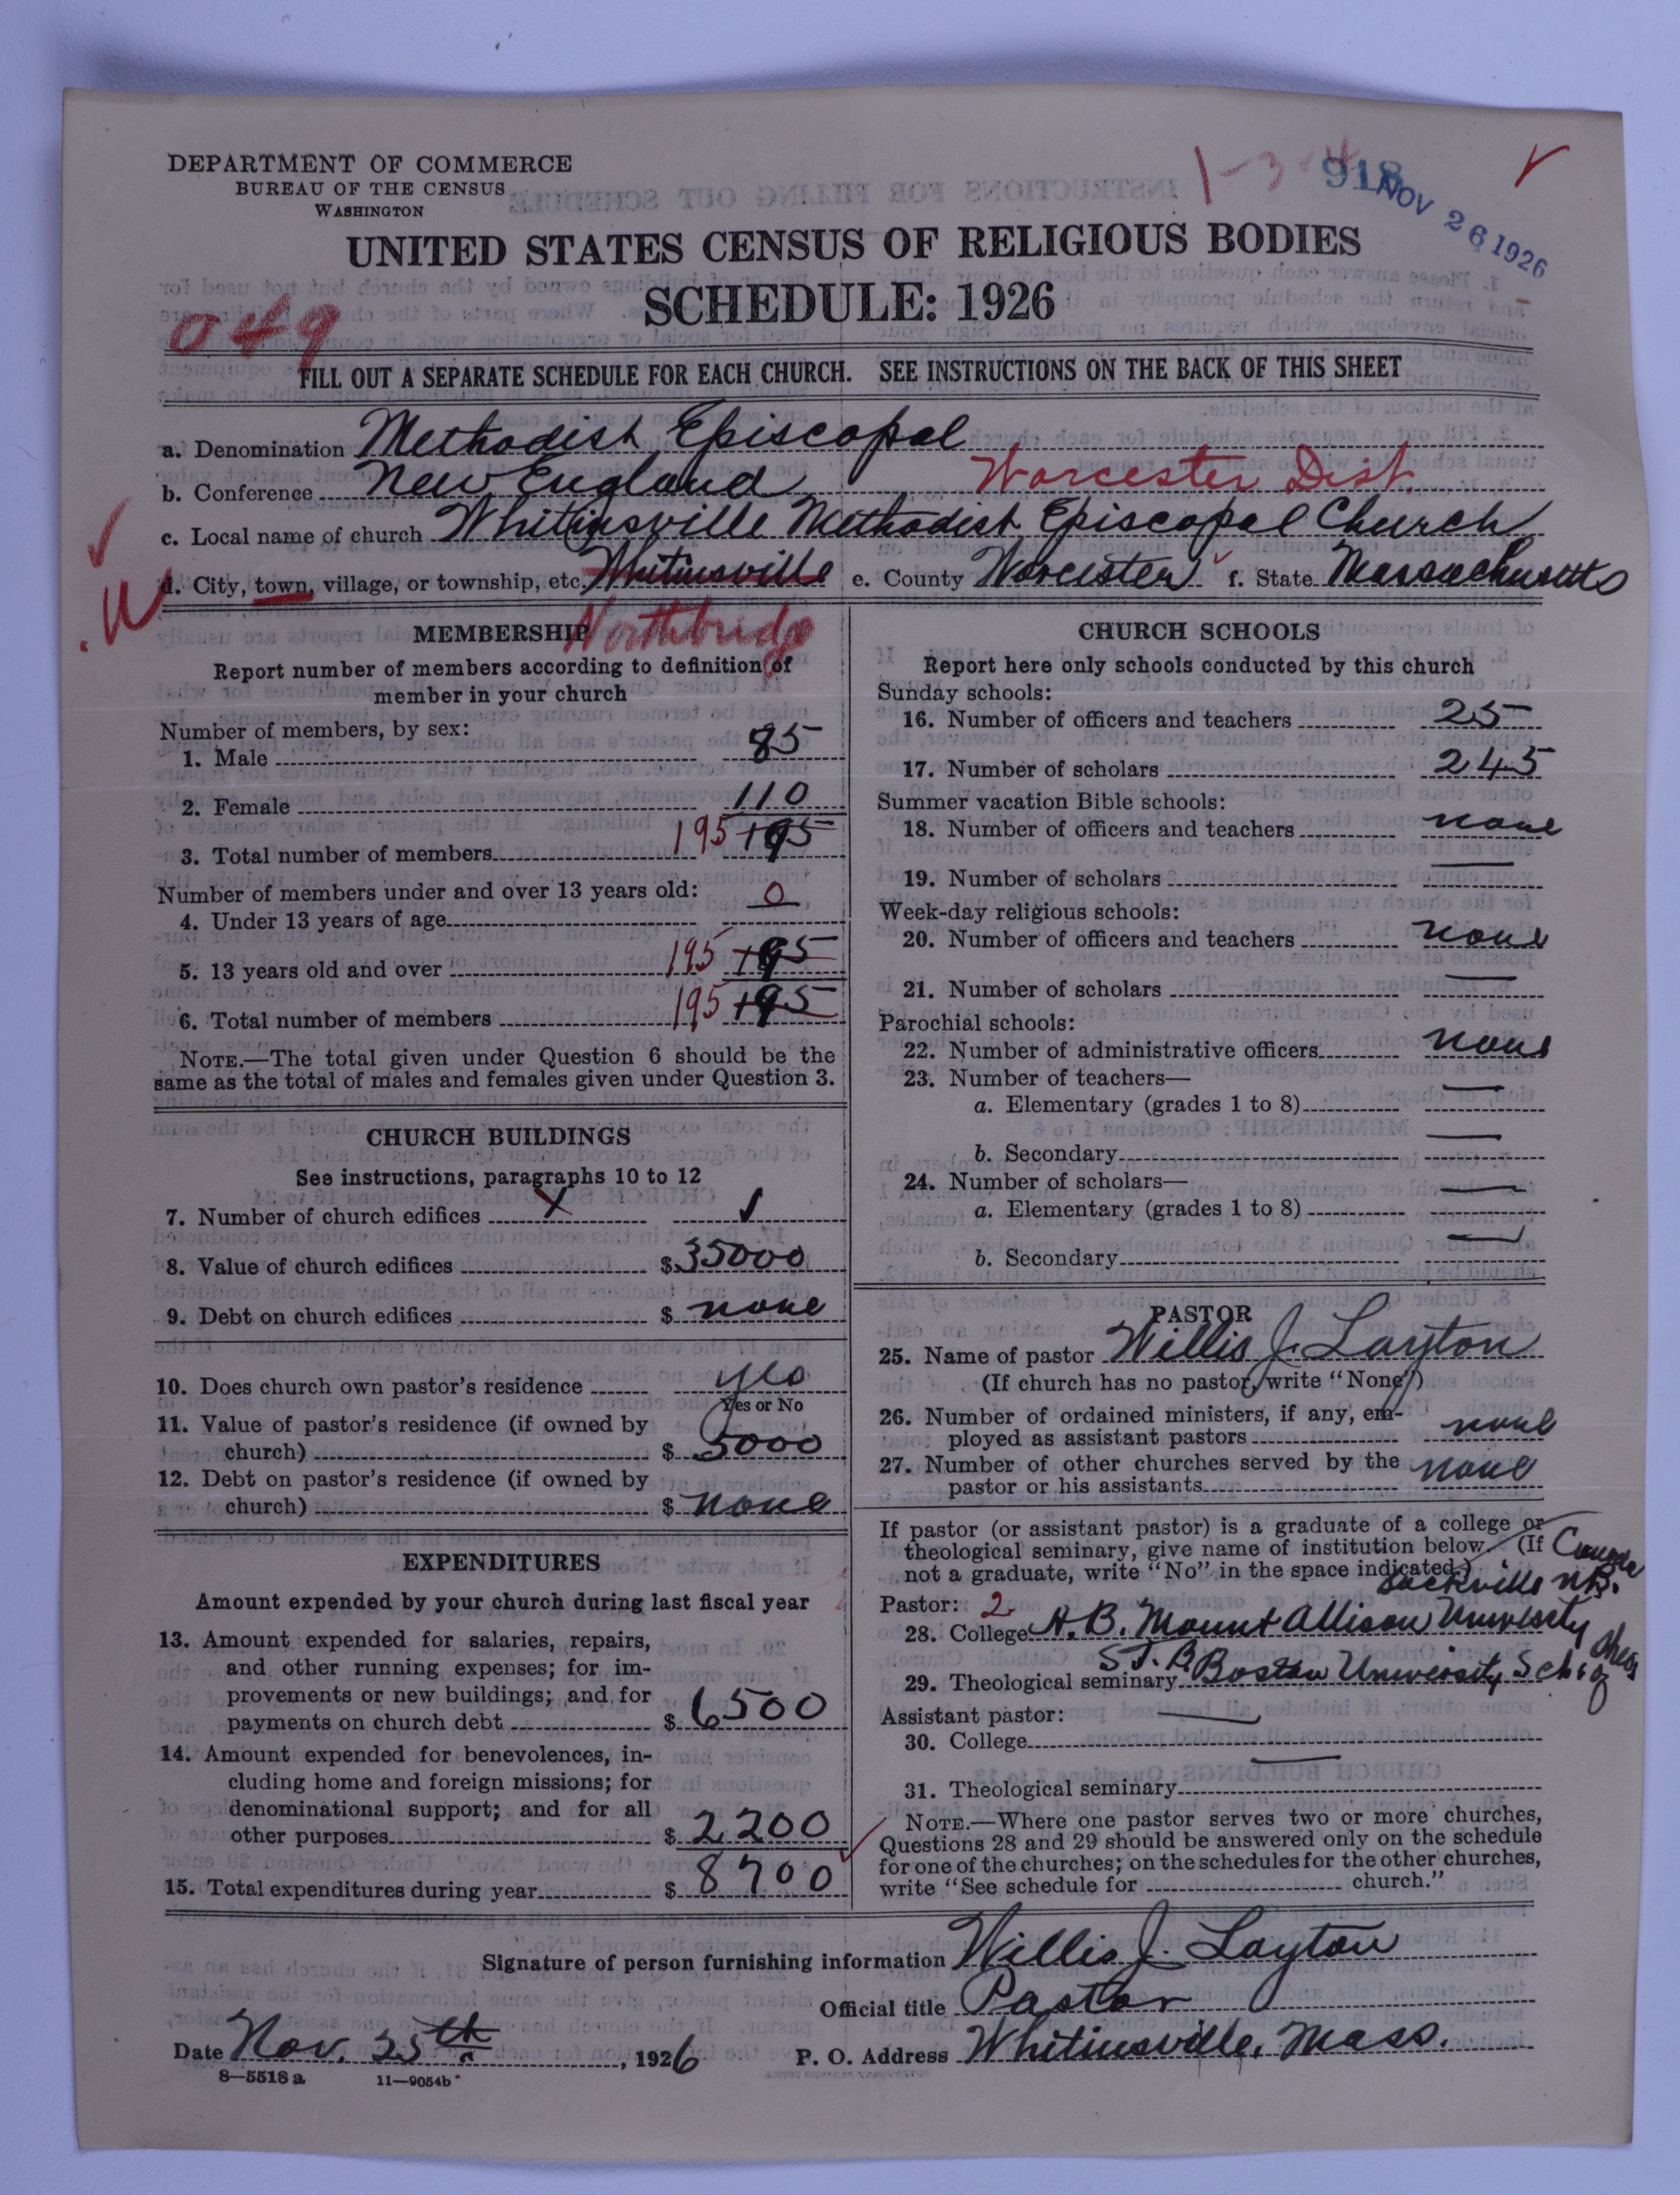 DEPARTMENT OF COMMERCE
BUREAU OF THE CENSUS
WASHINGTON
918
NOV 26 1926
UNITED STATES CENSUS OF RELIGIOUS BODIES
SCHEDULE: 1926
049
FILL OUT A SEPARATE SCHEDULE FOR EACH CHURCH. SEE INSTRUCTIONS ON THE BACK OF THIS SHEET
a. Denomination Methodist Episcopal
b. Conference New England Worcester Dist.
c. Local name of church Whitinsville Methodist Episcopal Church
d. City, town, village, or township, etc. Whitinsville e. County Worcester f. State Massachusetts
Northbridge
MEMBERSHIP
Report number of members according to definition of
member in your church
Number of members, by sex:
1. Male 85
2. Female 110
3. Total number of members 195 195
Number of members under and over 13 years old:
4. Under 13 years of age 0
5. 13 years old and over 195 195
6. Total number of members 195 195
NOTE.—The total given under Question 6 should be the
same as the total of males and females given under Question 3.
CHURCH BUILDINGS
See instructions, paragraphs 10 to 12
7. Number of church edifices X
8. Value of church edifices $ 35000
9. Debt on church edifices $ none
10. Does church own pastor's residence yes
Yes or No
11. Value of pastor's residence (if owned by
church) $ 5000
12. Debt on pastor's residence (if owned by
church) $ none
EXPENDITURES
Amount expended by your church during last fiscal year
13. Amount expended for salaries, repairs,
and other running expenses; for im-
provements or new buildings; and for
payments on church debt $ 6500
14. Amount expended for benevolences, in-
cluding home and foreign missions; for
denominational support; and for all
other purposes $ 2200
15. Total expenditures during year $ 8700
CHURCH SCHOOLS
Report here only schools conducted by this church
Sunday schools:
16. Number of officers and teachers 25
17. Number of scholars 245
Summer vacation Bible schools:
18. Number of officers and teachers none
19. Number of scholars —
Week-day religious schools:
20. Number of officers and teachers none
21. Number of scholars —
Parochial schools:
22. Number of administrative officers none
23. Number of teachers—
a. Elementary (grades 1 to 8) —
b. Secondary —
24. Number of scholars—
a. Elementary (grades 1 to 8) —
b. Secondary —
PASTOR
25. Name of pastor Willis J. Layton
(If church has no pastor, write "None")
26. Number of ordained ministers, if any, em-
ployed as assistant pastors none
27. Number of other churches served by the
pastor or his assistants none
If pastor (or assistant pastor) is a graduate of a college or
theological seminary, give name of institution below. (If
not a graduate, write "No" in the space indicated.)
Canada
Sackville N.B.
Pastor: 2
28. College A. B. Mount Allison University
29. Theological seminary S.T.B. Boston University Sch. of Theol
Assistant pastor:
30. College —
31. Theological seminary —
NOTE.—Where one pastor serves two or more churches,
Questions 28 and 29 should be answered only on the schedule
for one of the churches; on the schedules for the other churches,
write "See schedule for church."
Signature of person furnishing information Willis J. Layton
Official title Pastor
Date Nov. 25th, 1926 P. O. Address Whitinsville, Mass.
8—5518 a 11—9054b